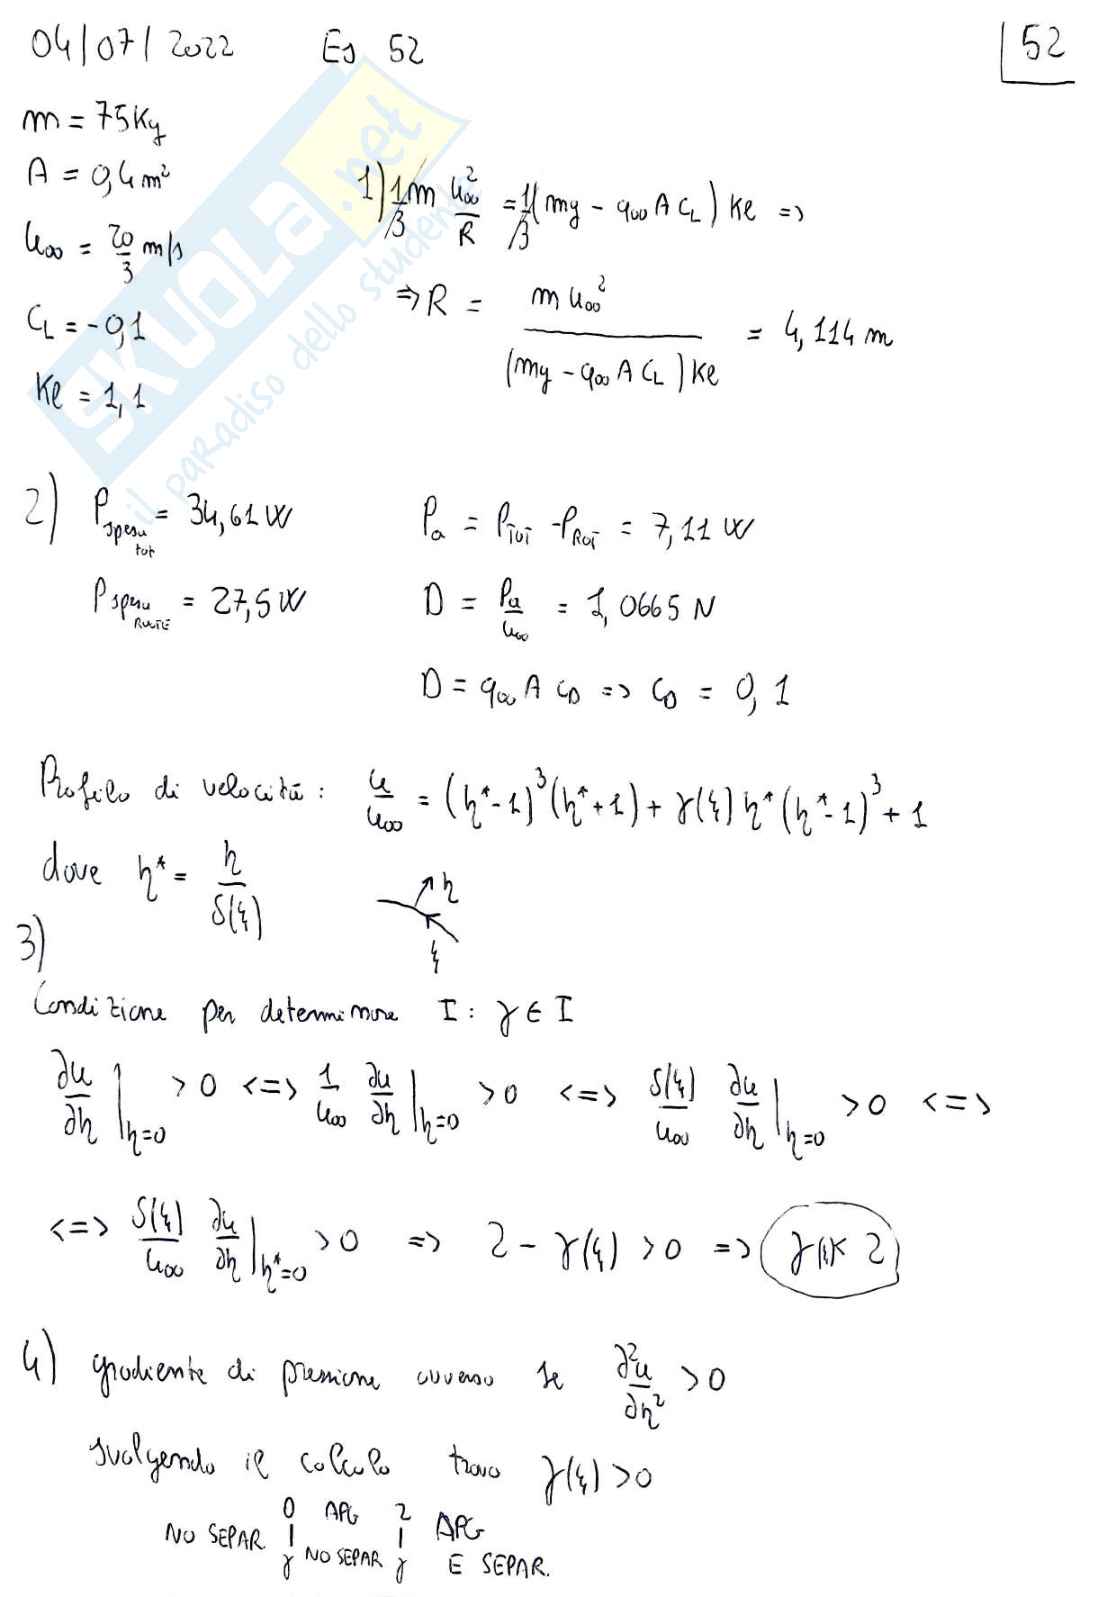 04/07/2022 Es 52
52
m = 75Kg
A = 0,4 m²
u∞ = 20/3 m/s
CL = -0,1
Ke = 1,1
1) 1/3 m u∞²/R = 1/3 (mg - q∞ A CL) Ke =>
=> R = m u∞² / (mg - q∞ A CL) Ke = 4,114 m
2) P spesa tot = 34,61 W
P spesa RUOTE = 27,5 W
Pa = PTOT - PROT = 7,11 W
D = Pa/u∞ = 1,0665 N
D = q∞ A CD => CD = 0,1
Profilo di velocità: u/u∞ = (η*-1)³(η*+1) + γ(ξ) η*(η*-1)³ + 1
dove η* = η/δ(ξ)
η
ξ
3)
Condizione per determinare I : γ ∈ I
∂u/∂η |η=0 > 0 <=> 1/u∞ ∂u/∂η |η=0 > 0 <=> δ(ξ)/u∞ ∂u/∂η |η=0 > 0 <=>
<=> δ(ξ)/u∞ ∂u/∂η |η*=0 > 0 => 2 - γ(ξ) > 0 => γ(ξ) < 2
4) gradiente di pressione avverso se ∂²u/∂η² > 0
svolgendo il calcolo trovo γ(ξ) > 0
0 APG 2 APG
NO SEPAR γ NO SEPAR γ E SEPAR.
SKUOLA.net
il paradiso dello studente